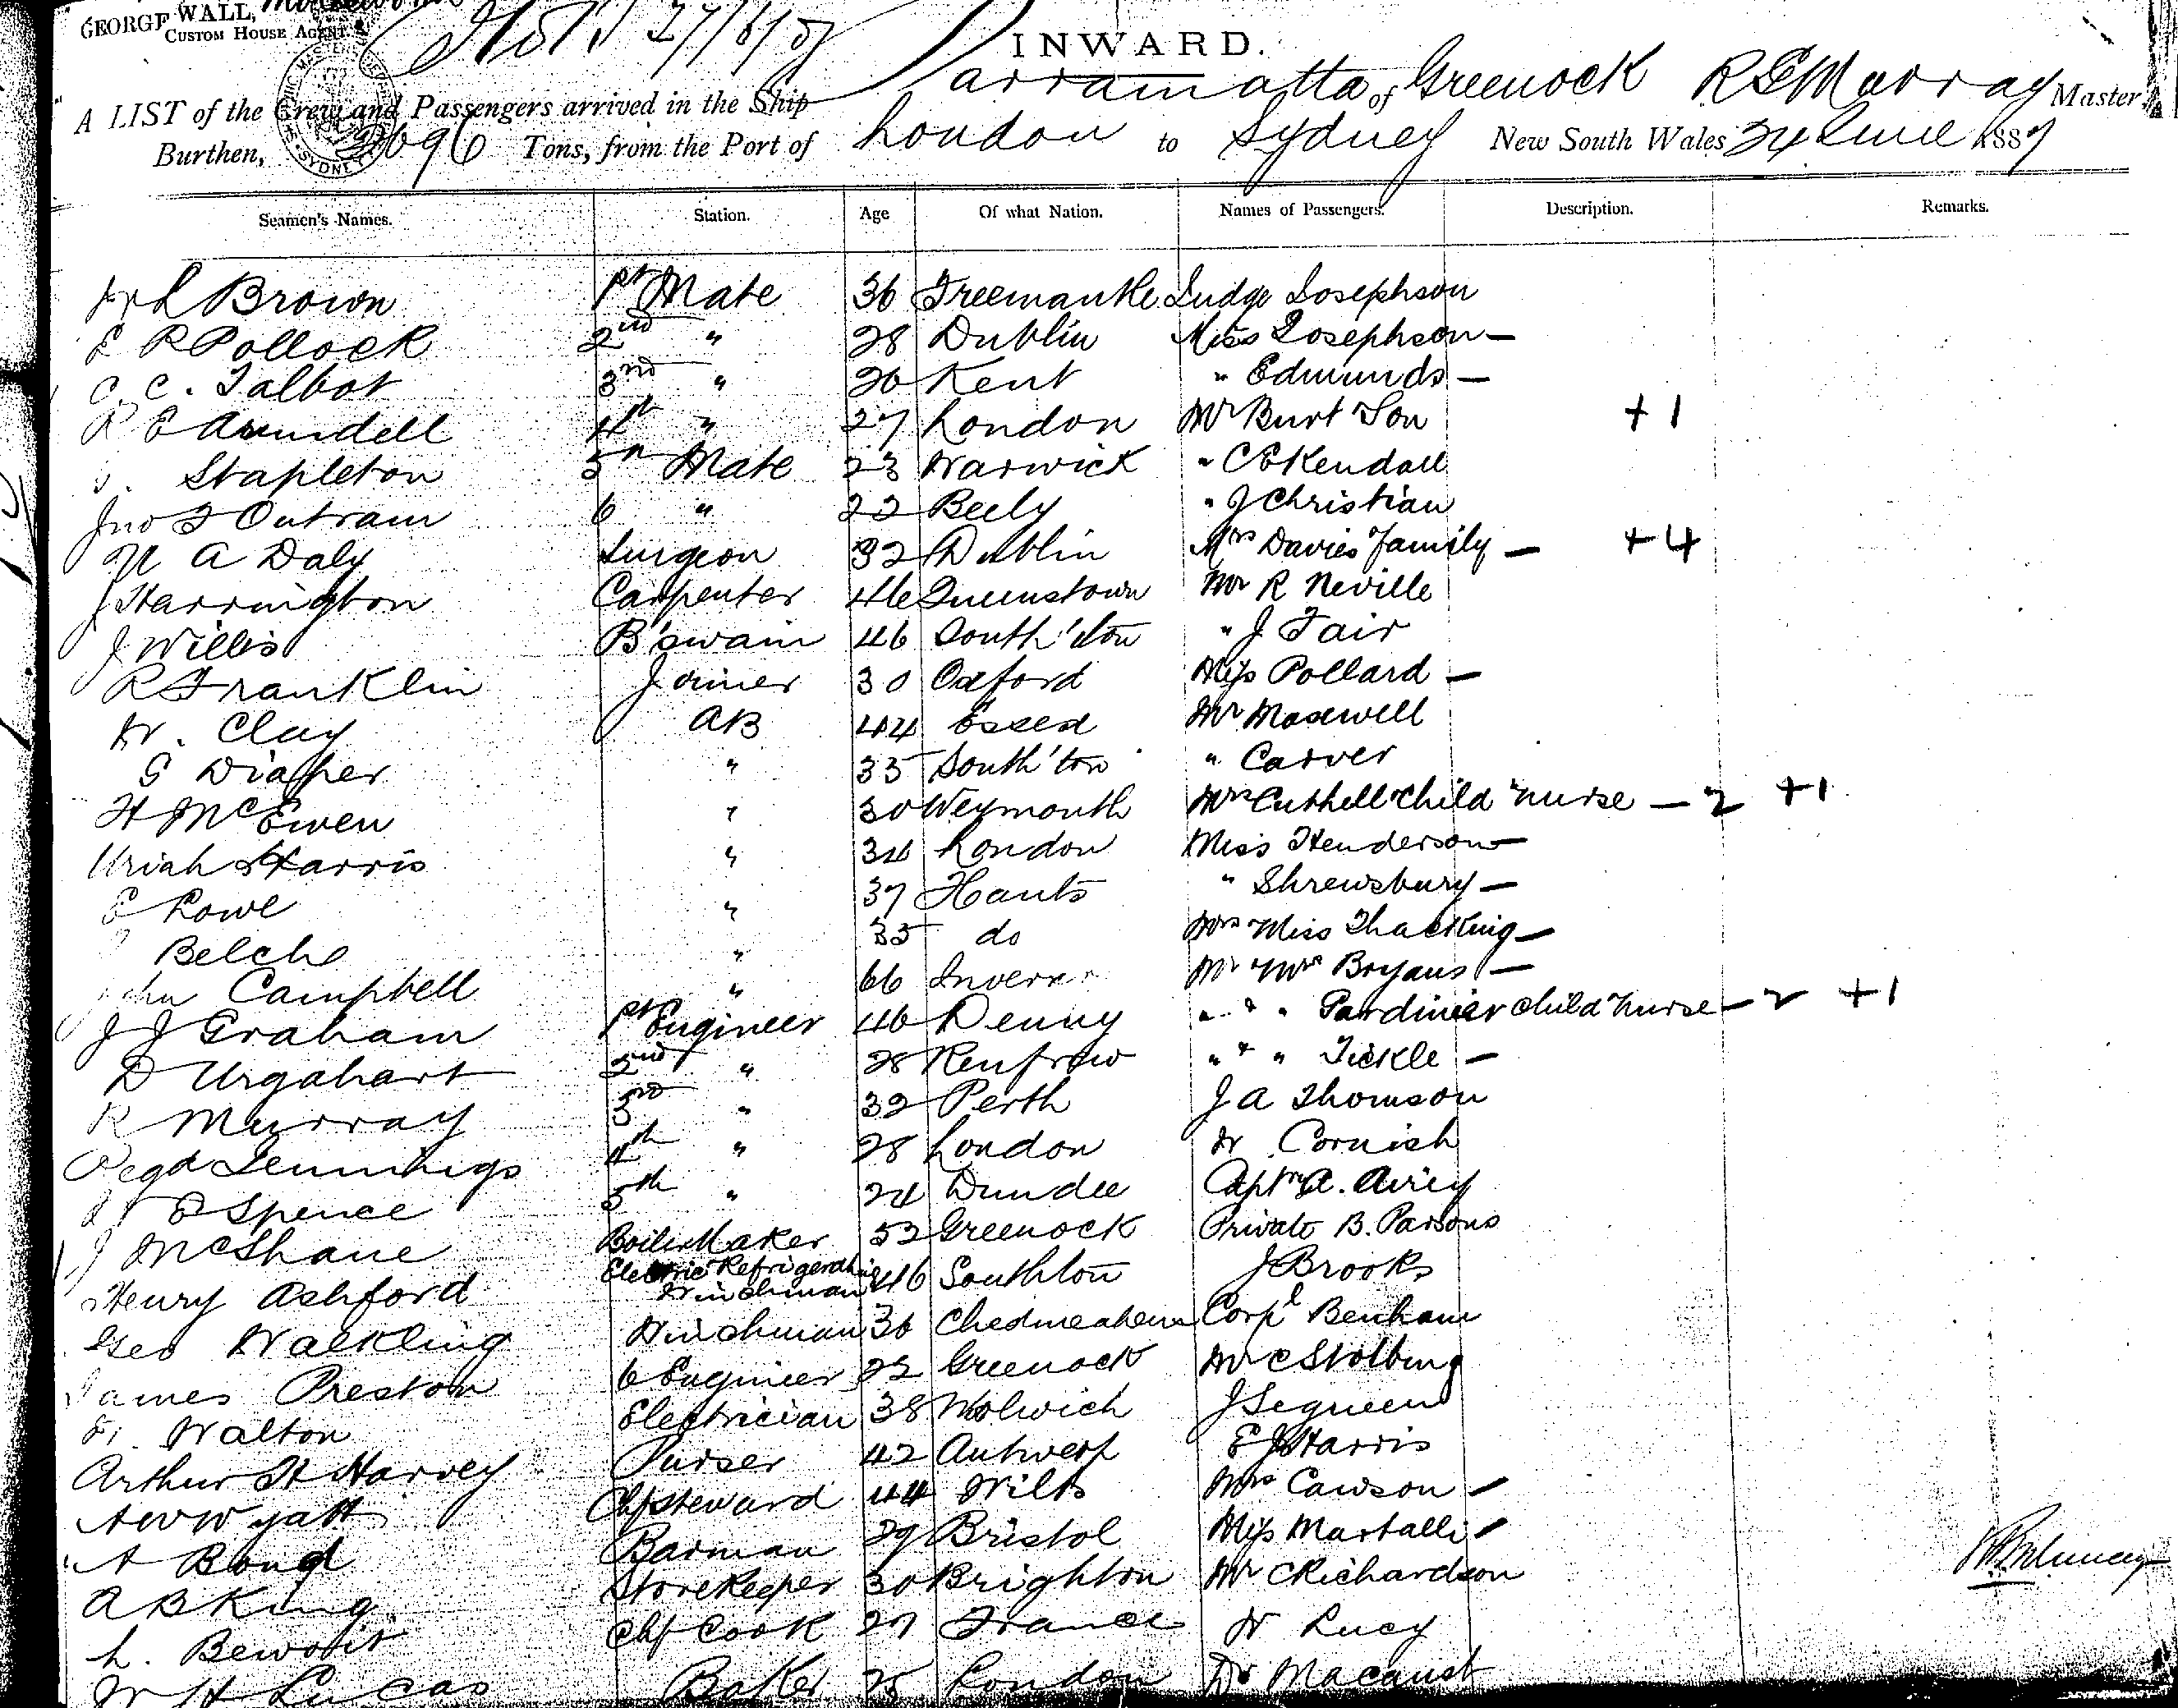 GEORGE WALL,
CUSTOM HOUSE AGENT &
27/6/87
INWARD.
A LIST of the Crew and Passengers arrived in the Ship Parramatta of Greenock R E Murray Master,
Burthen, 3696 Tons, from the Port of London to Sydney New South Wales 24 June 1887
Seamen's Names. Station. Age Of what Nation. Names of Passengers. Description. Remarks.
Brown 1st Mate 36 Freemantle Judge Josephson
E R Pollock 2nd " 28 Dublin Miss Josephson —
C. C. Talbot 3rd " 26 Kent " Edmunds —
R E Arundell 4th " 27 London Mr Burt & Son +1
Stapleton 5th Mate 23 Warwick " C E Kendall
Jno J Outram 6 " 22 Beely " J Christian
A Daly Surgeon 32 Dublin Mrs Davies Family — +4
J Harrington Carpenter 46 Queenstown Mr R Neville
J Willis B'swain 46 South'ton " J Fair
R Franklin Joiner 30 Oxford Miss Pollard —
W. Clay AB 44 Essex Mr Maxwell
G Diaper " 35 South'ton " Carver
H McEwen " 30 Weymouth Mrs Cuthell child & nurse — 2 +1
Uriah Harris " 34 London Miss Henderson —
E Lowe " 37 Hants " Shrewsbury —
Belche " 35 do Mrs & Miss Thacking —
John Campbell " 66 Mr & Mrs Bryans —
J J Graham 1st Engineer 46 Denny " & " Gardinier child & nurse — 2 +1
D Urqahart 2nd " 28 Renfrew " & " Tickle —
R Murray 3rd " 32 Perth J A Thomson
Regd Jennings 4th " 28 London W Cornish
E Spence 5th " 24 Dundee Captn A. Airey
J McShane Boiler Maker 52 Greenock Private B. Parsons
Henry Ashford Electric Refrigerating Winchman 46 Southton J Brooks
Geo Walkling Winchman 36 Corpl Benham
James Preston 6 Engineer 22 Greenock Mr C Stolburg
Walton Electrician 38 Wolwich J Segueen
Arthur H Harvey Purser 42 Antwerp E J Harris
A W Wyatt Chf Steward 44 Wilts Mrs Cawson —
A Bond Barman 29 Bristol Miss Martalli —
A B King Storekeeper 30 Brighton Mr C Richardson
L. Bewoit Chf Cook 27 France W Lucy
W H Lucas Baker 25 London Dr Macaust